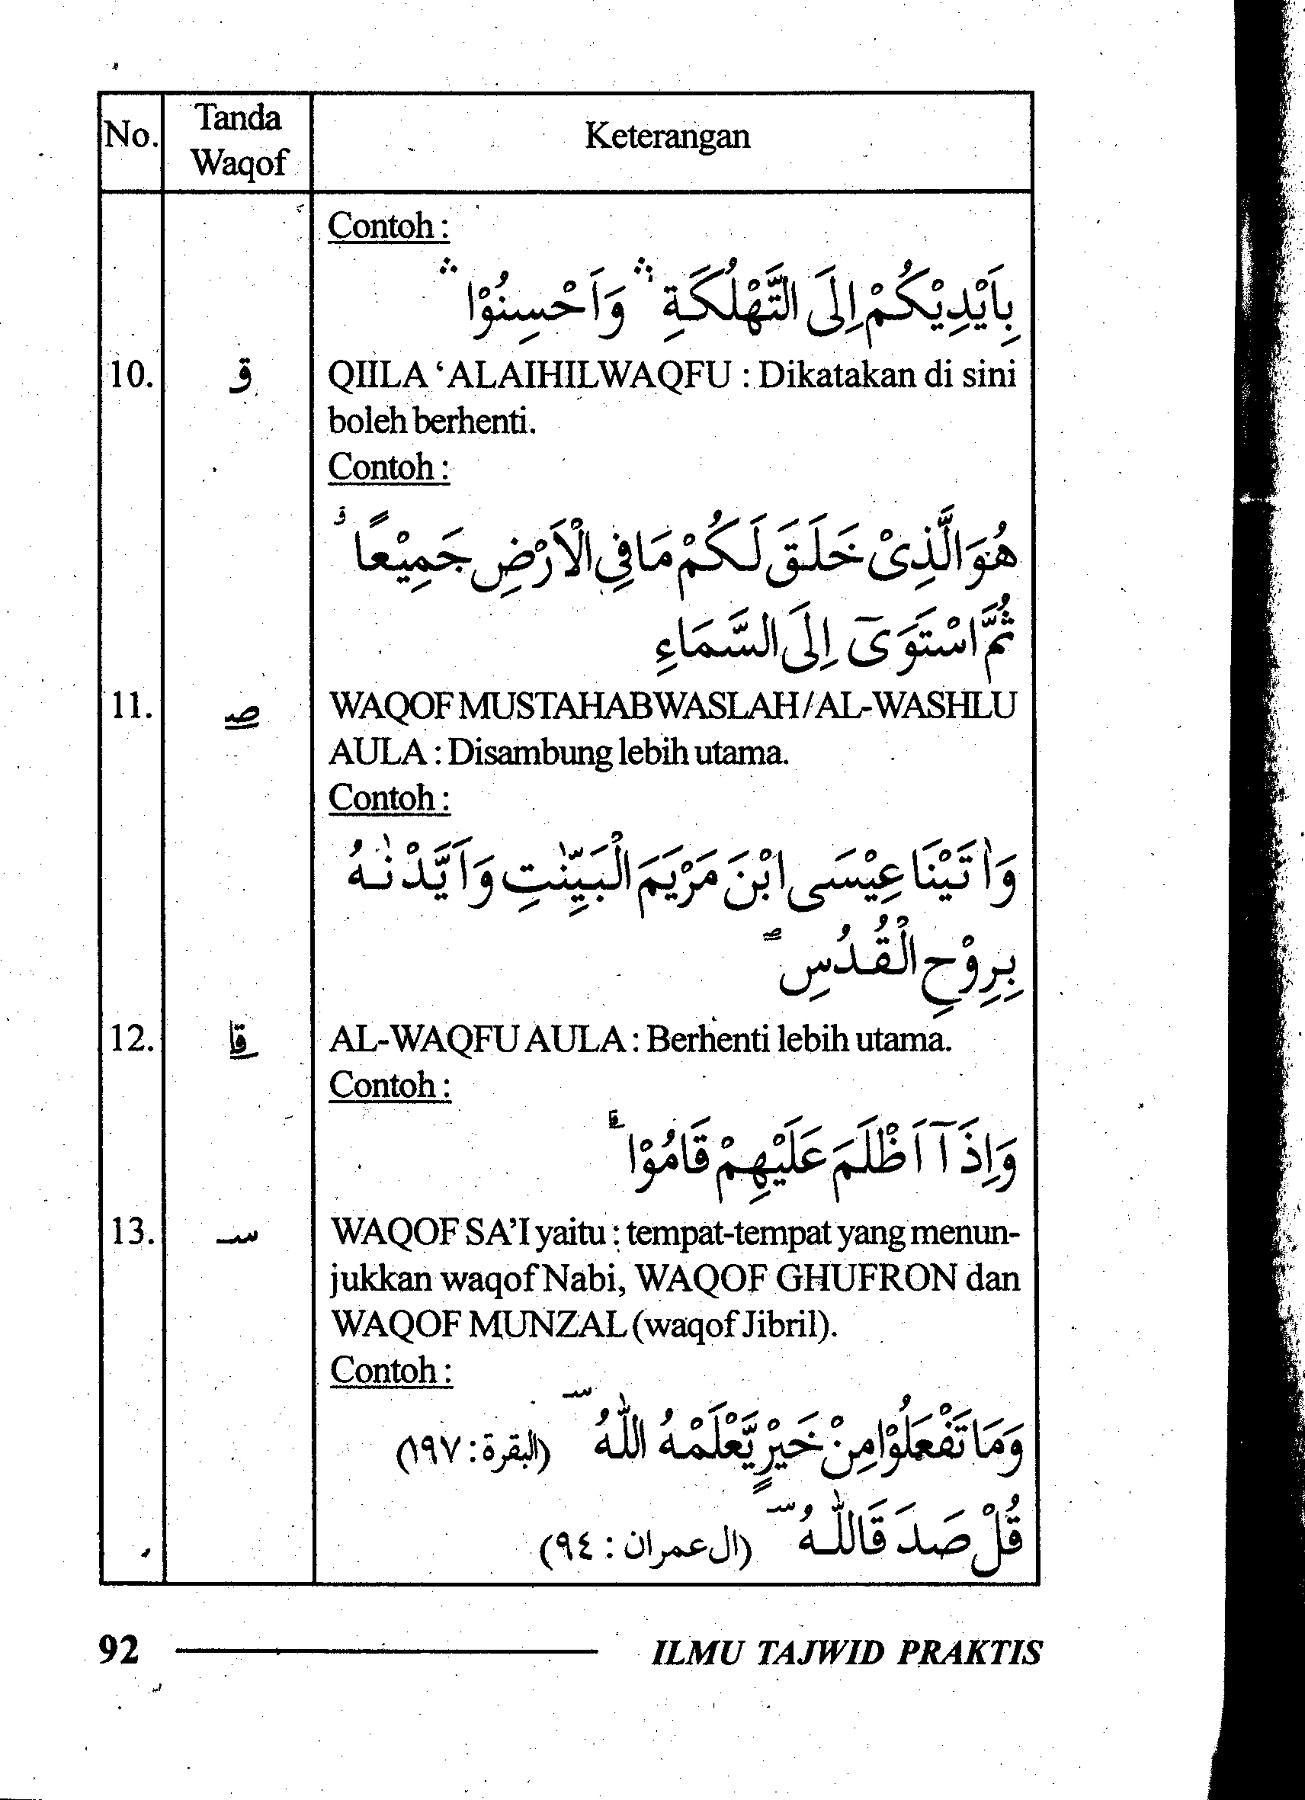 No. Tanda Waqof Keterangan
Contoh :
بِاَيْدِيْكُمْ اِلَى التَّهْلُكَةِ ۛ وَاَحْسِنُوْا ۛ
10. ق QIILA ‘ALAIHILWAQFU : Dikatakan di sini
boleh berhenti.
Contoh :
هُوَ الَّذِىْ خَلَقَ لَكُمْ مَا فِى الْاَرْضِ جَمِيْعًا ق
ثُمَّ اسْتَوَىٓ اِلَى السَّمَاءِ
11. صــ WAQOF MUSTAHAB WASLAH / AL-WASHLU
AULA : Disambung lebih utama.
Contoh :
وَاٰتَيْنَا عِيْسَى ابْنَ مَرْيَمَ الْبَيِّنٰتِ وَاَيَّدْنٰهُ
بِرِوْحِ الْقُدُسِ ۗ
12. قلے AL-WAQFU AULA : Berhenti lebih utama.
Contoh :
وَاِذَآ اَظْلَمَ عَلَيْهِمْ قَامُوْا
13. ســ WAQOF SA’I yaitu : tempat-tempat yang menun-
jukkan waqof Nabi, WAQOF GHUFRON dan
WAQOF MUNZAL (waqof Jibril).
Contoh :
وَمَا تَفْعَلُوْا مِنْ خَيْرٍ يَّعْلَمْهُ اللّٰهُ ســ (البقرة : ١٩٧)
قُلْ صَدَقَ اللّٰهُ ســ (ال عمران : ٩٤)
92 ILMU TAJWID PRAKTIS